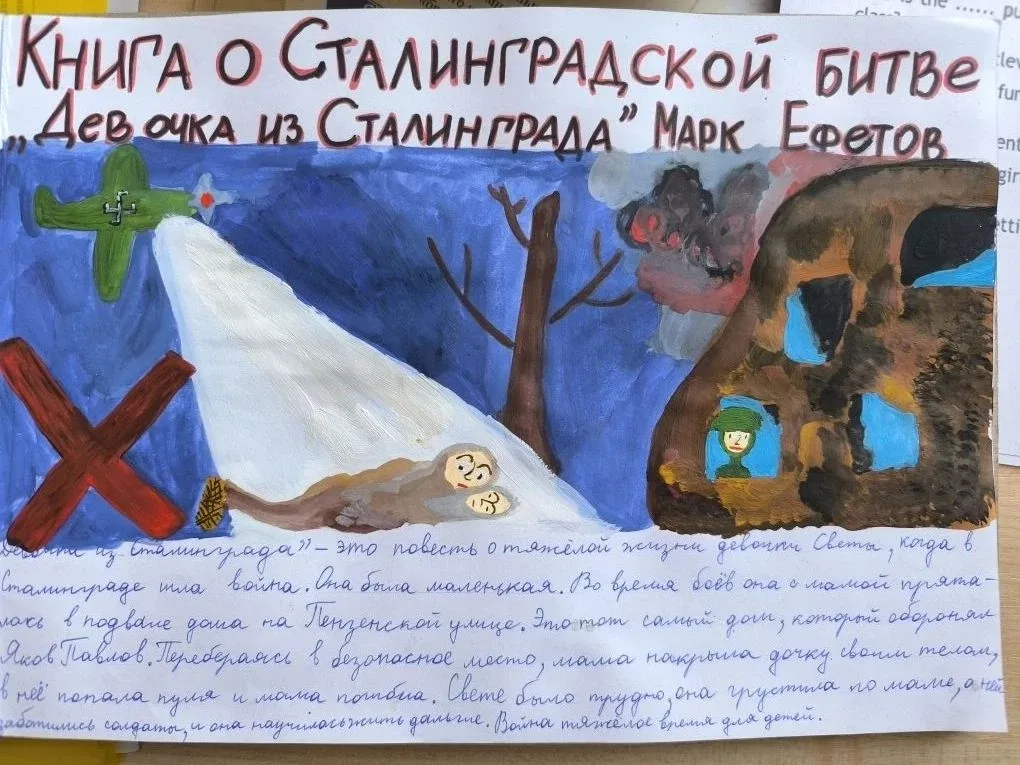 Книга о Сталинградской битве
„Девочка из Сталинграда” Марк Ефетов
Девочка из Сталинграда” – это повесть о тяжёлой жизни девочки Светы, когда в
Сталинграде шла война. Она была маленькая. Во время боёв она с мамой прята-
лась в подвале дома на Пензенской улице. Это тот самый дом, который оборонял
Яков Павлов. Перебераясь в безопасное место, мама накрыла дочку своим телом,
в неё попала пуля и мама погибла. Свете было трудно, она грустила по маме, о ней
заботились солдаты, и она научилась жить дальше. Война тяжёлое время для детей.
is the ...... pu